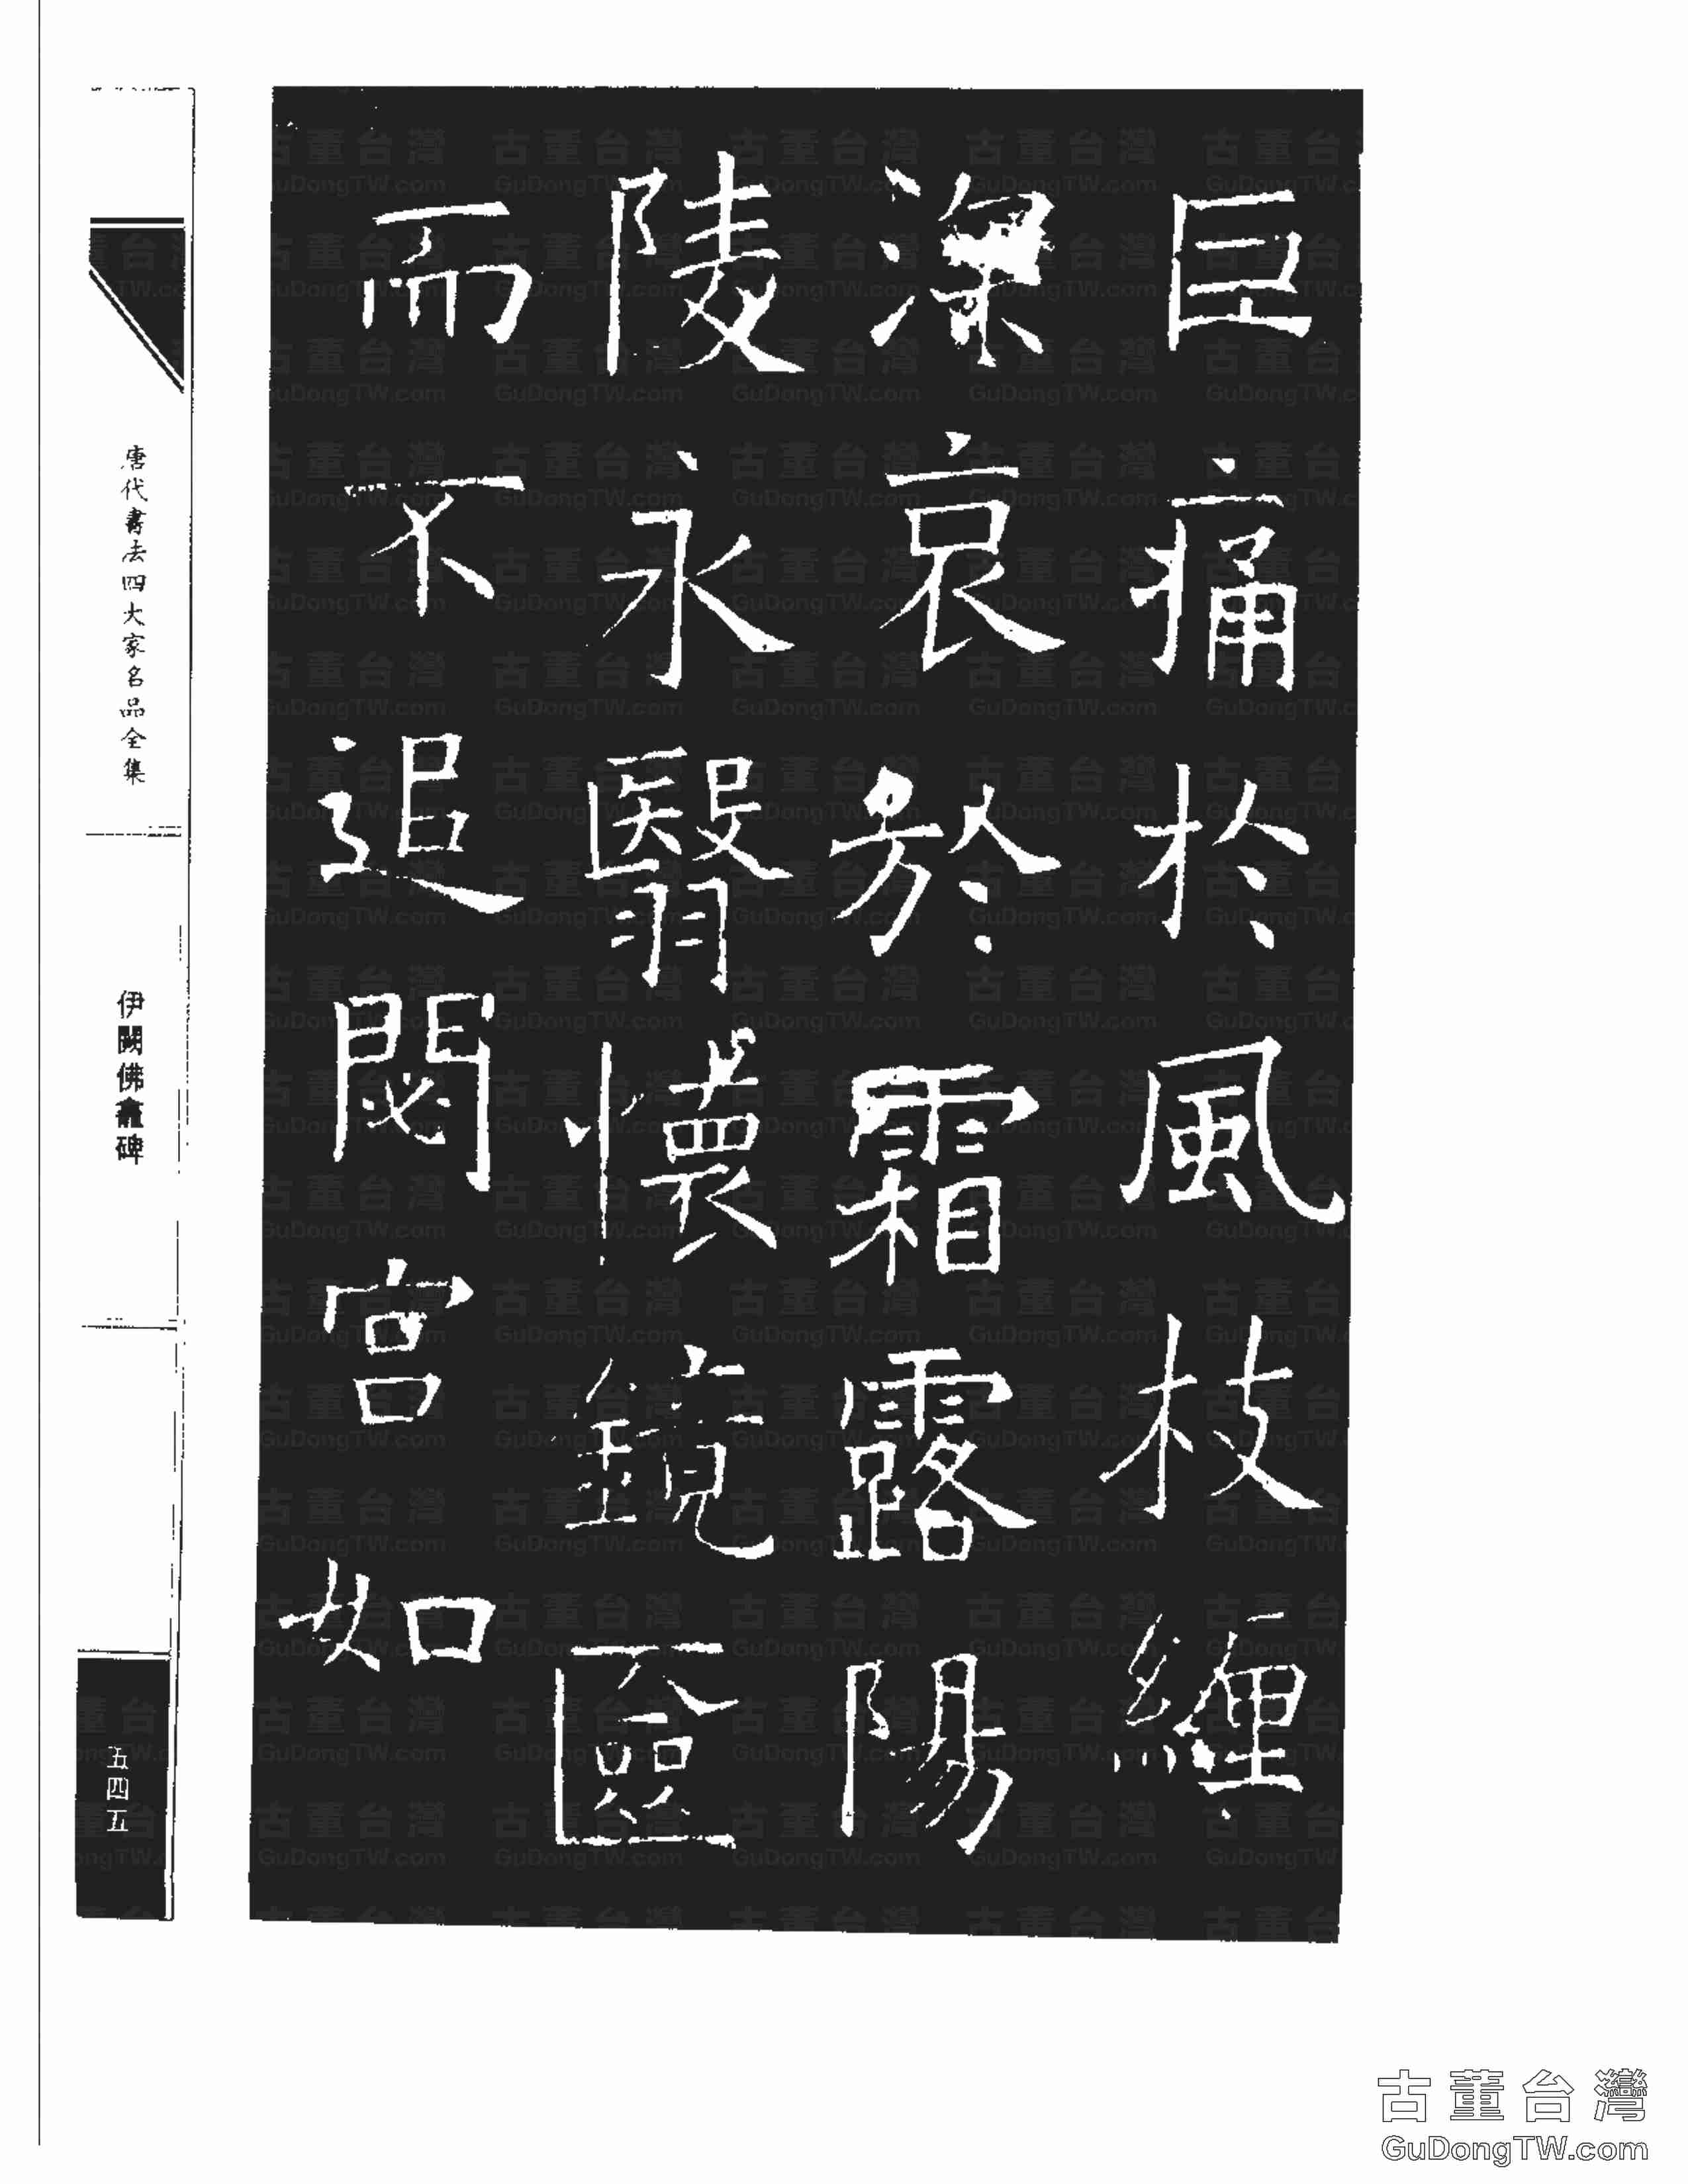 巨痛於風枝纏
深哀於霜露陽
陵永翳懷鏡匳
而不追閟宮如
唐代書法四大家名品全集
伊闕佛龕碑
五四五
古董台灣
GuDongTW.com